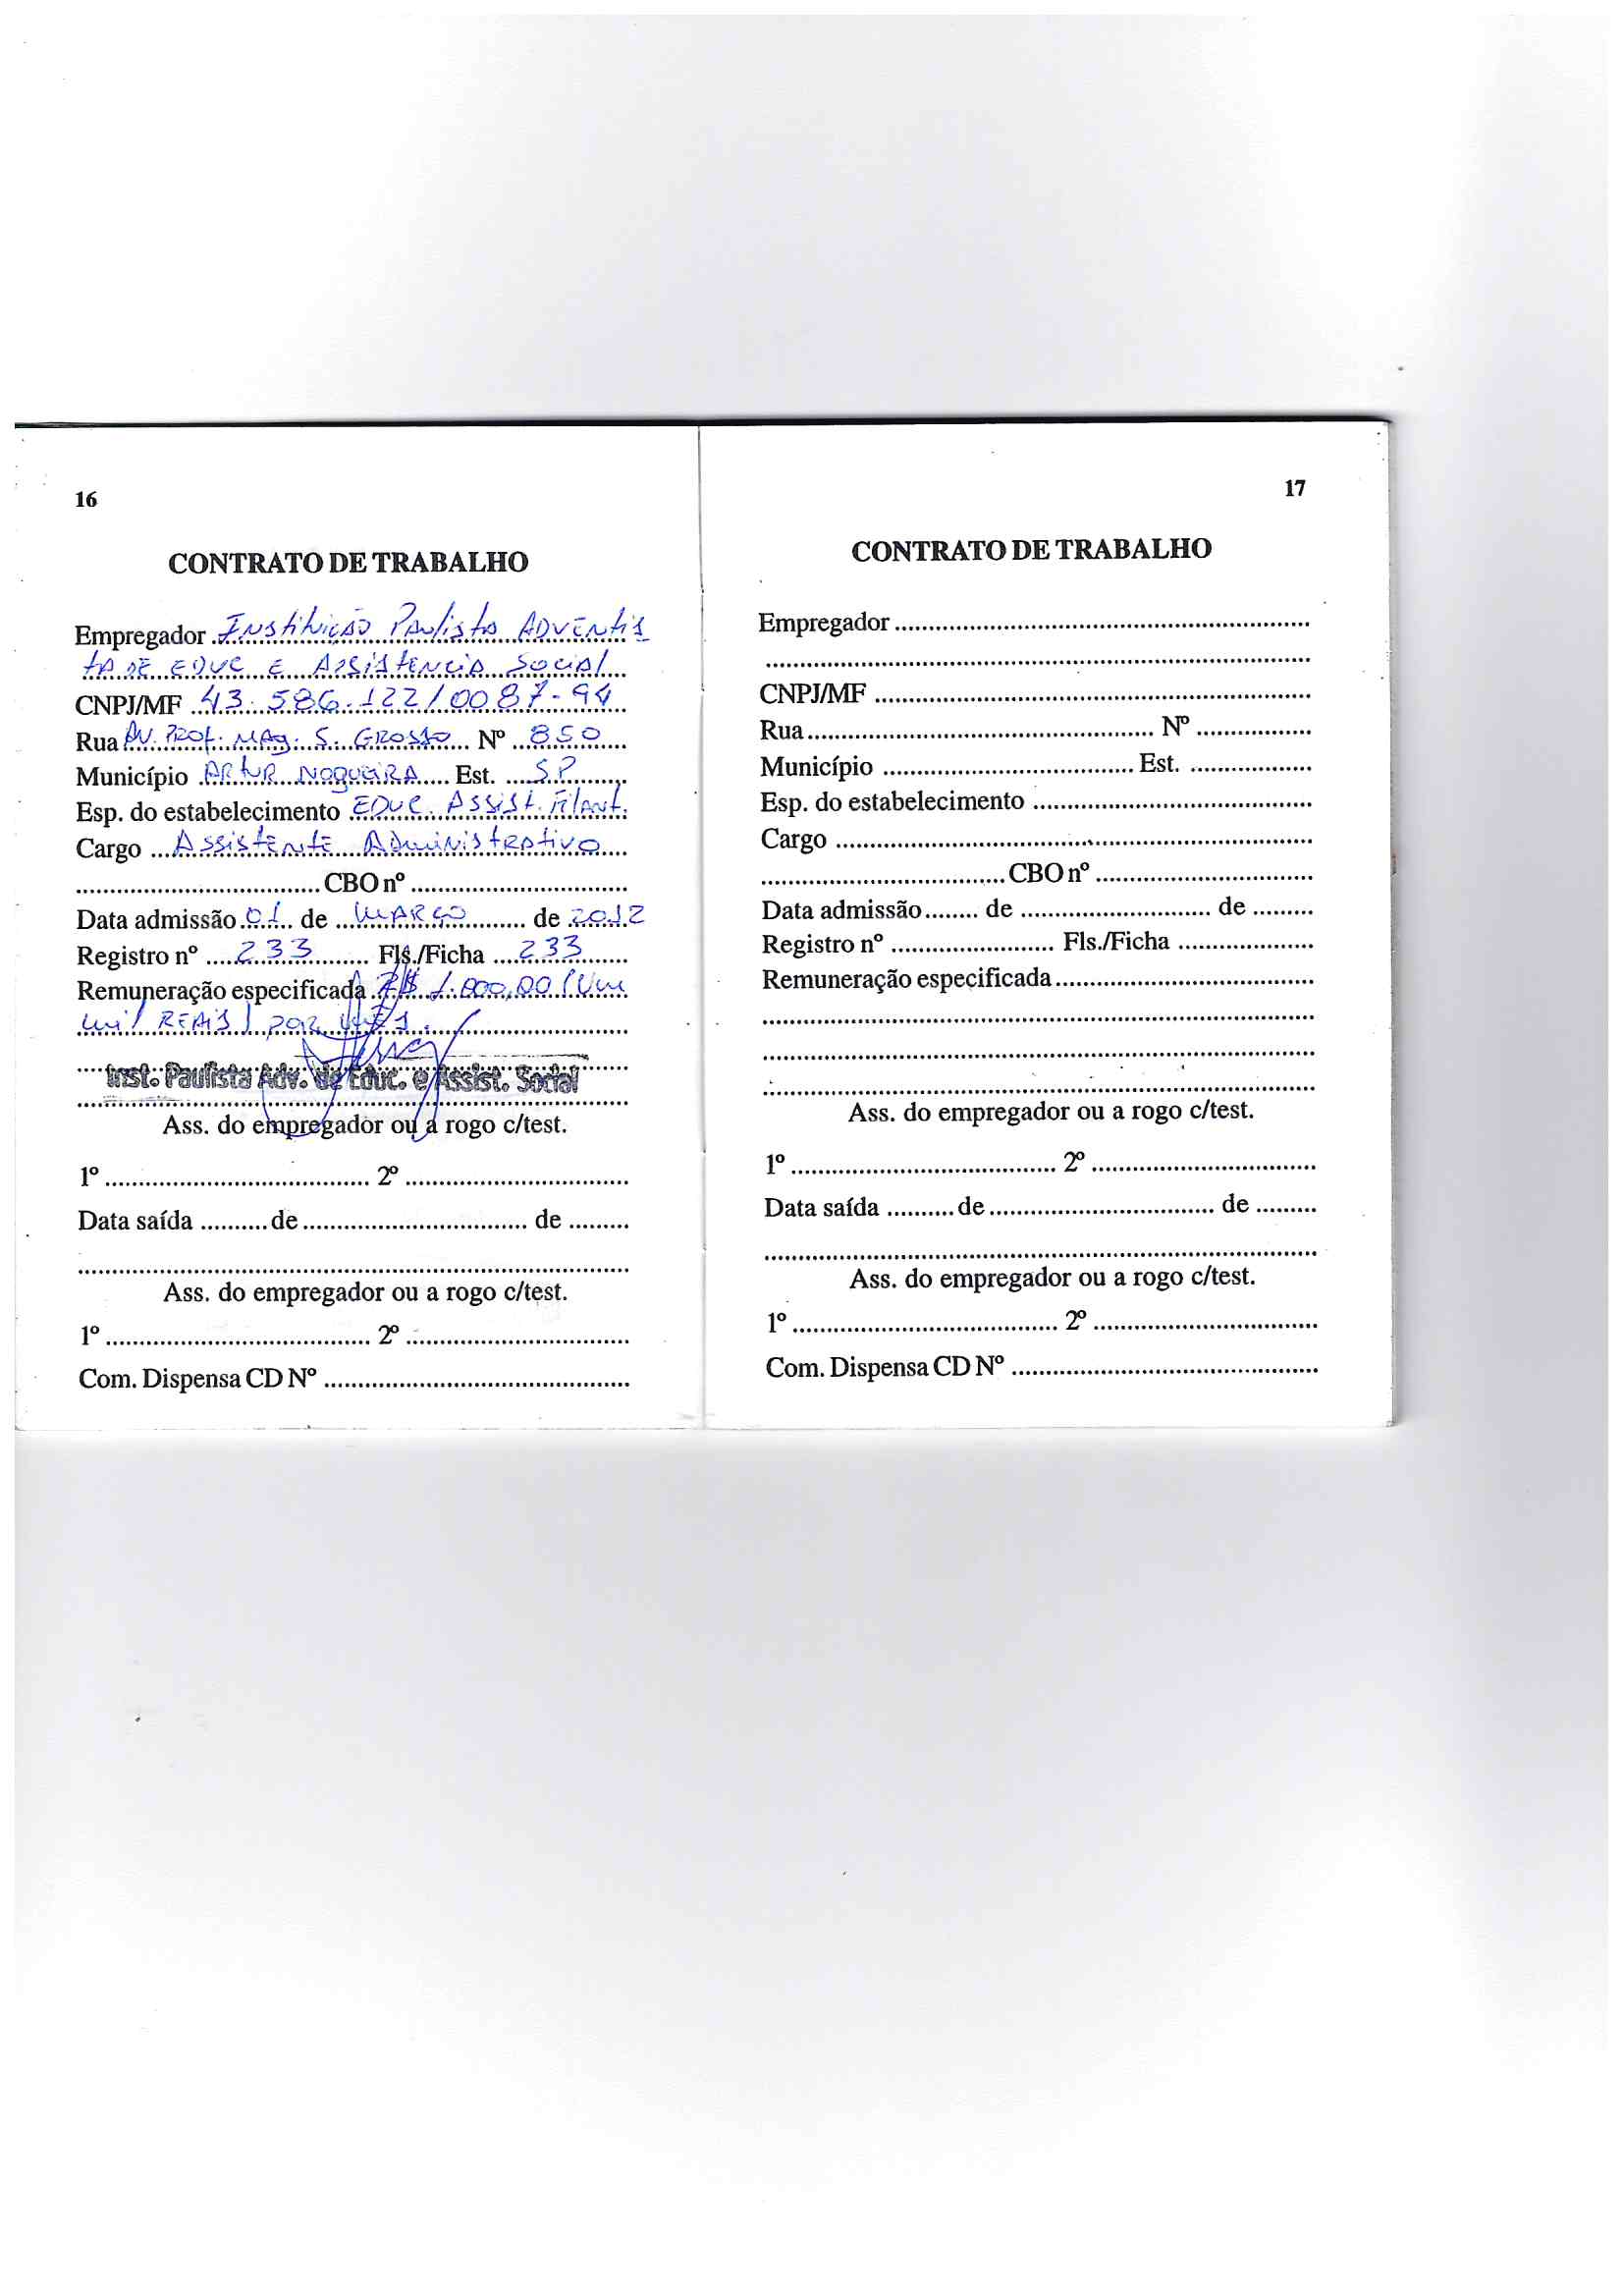 16
CONTRATO DE TRABALHO
Empregador Instituição Paulista Adventis
ta de Educ e Assistencia Social
CNPJ/MF 43.586.122/0087-94
Rua Av. Prof. Mag. S. Grosso Nº 850
Município Artur Nogueira Est. SP
Esp. do estabelecimento Educ. Assist. Filant.
Cargo Assistente Administrativo
CBO nº
Data admissão 01 de Março de 2012
Registro nº 233 Fls./Ficha 233
Remuneração especificada R$ 1.000,00 (Um
mil reais) por mês.
Inst. Paulista Adv. de Educ. e Assist. Social
Ass. do empregador ou a rogo c/test.
1º 2º
Data saída de de
Ass. do empregador ou a rogo c/test.
1º 2º
Com. Dispensa CD Nº
17
CONTRATO DE TRABALHO
Empregador
CNPJ/MF
Rua Nº
Município Est.
Esp. do estabelecimento
Cargo
CBO nº
Data admissão de de
Registro nº Fls./Ficha
Remuneração especificada
Ass. do empregador ou a rogo c/test.
1º 2º
Data saída de de
Ass. do empregador ou a rogo c/test.
1º 2º
Com. Dispensa CD Nº